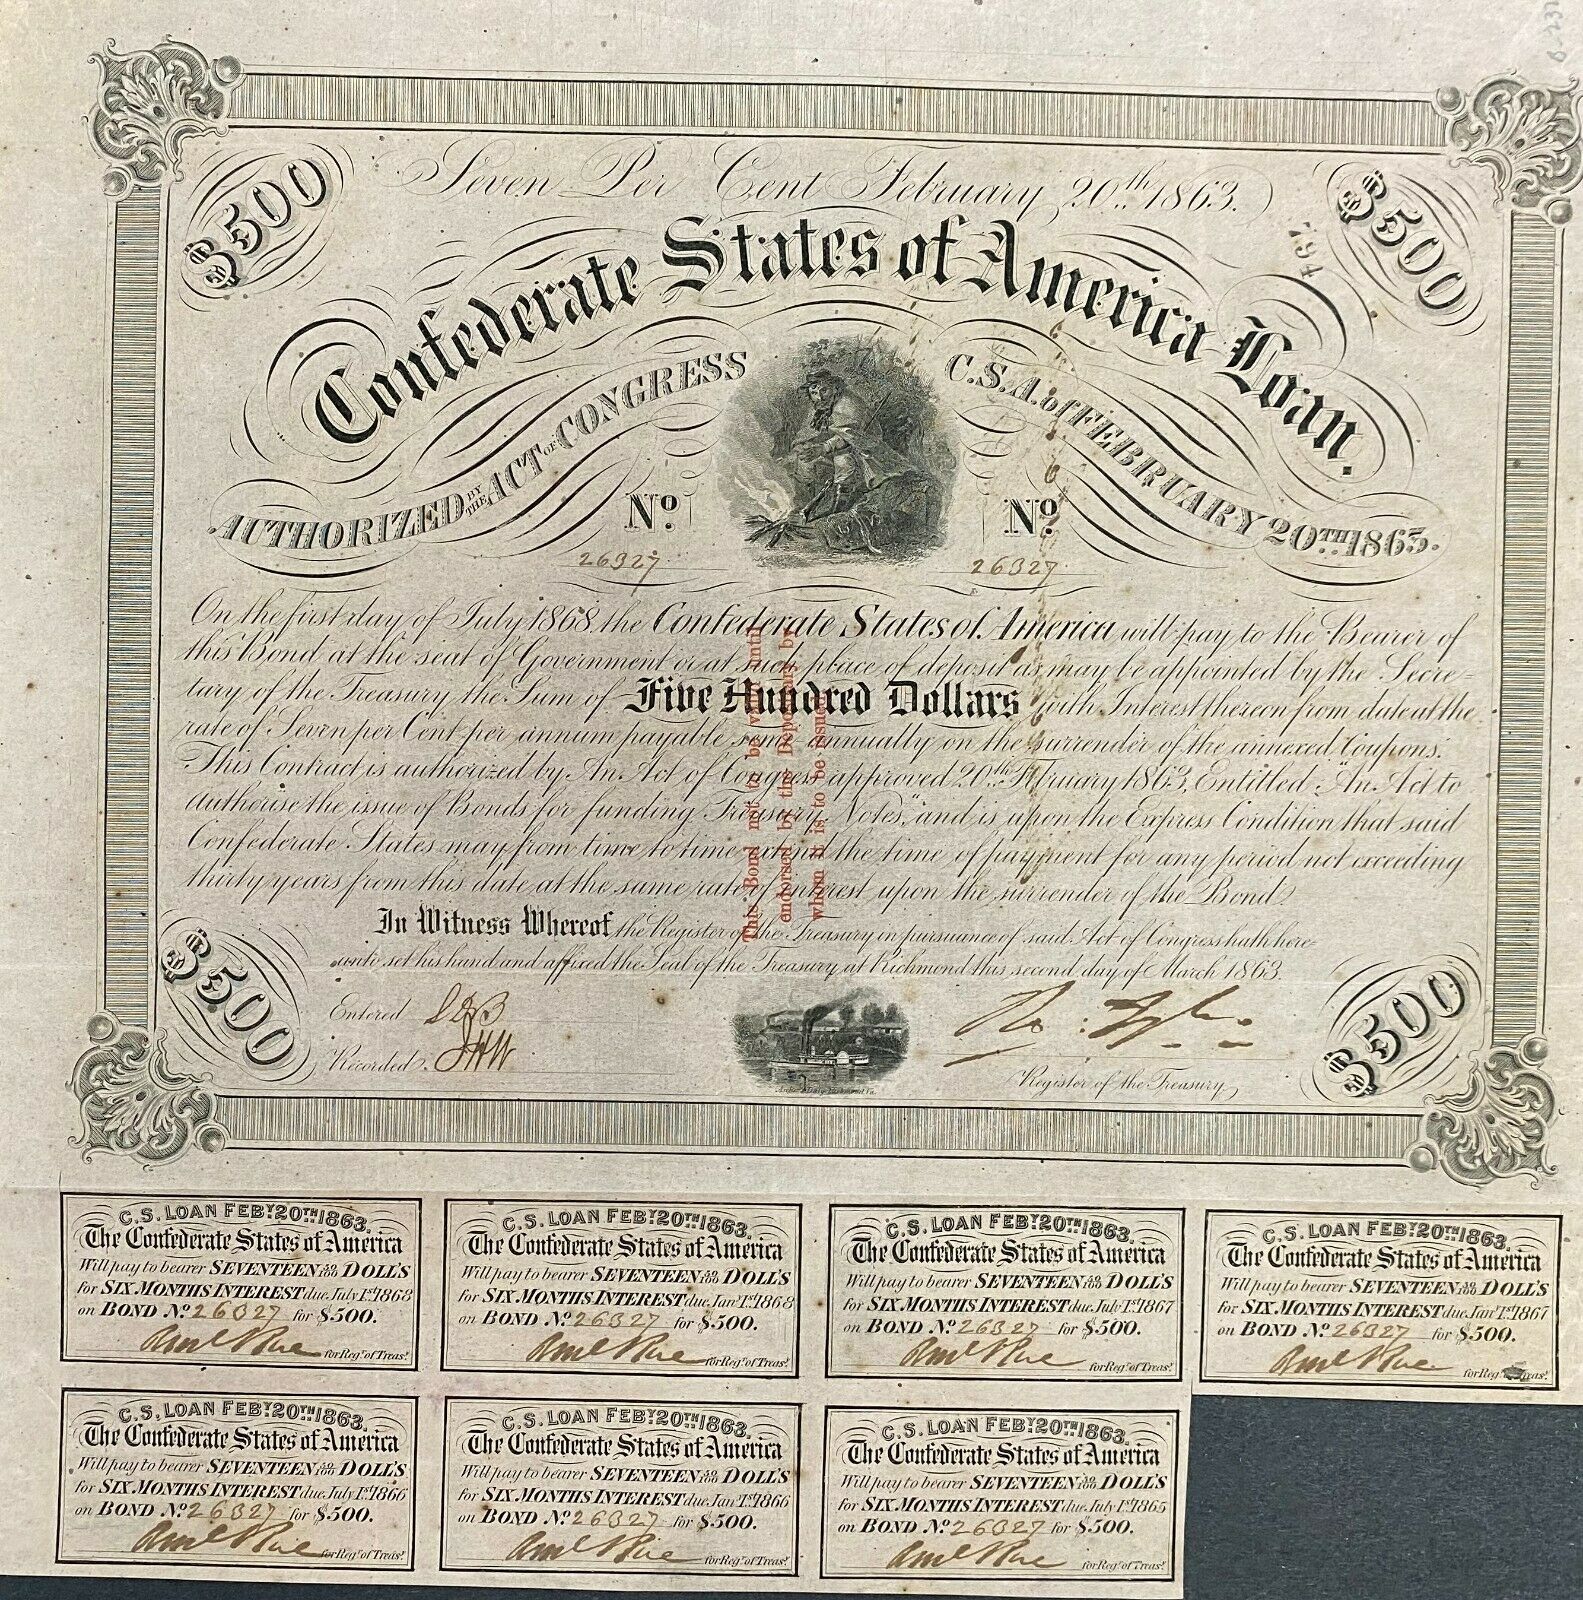 Seven Per Cent February 20th 1863.
$500
$500
Confederate States of America Loan.
AUTHORIZED BY THE ACT OF CONGRESS
C.S.A. of FEBRUARY 20TH 1863.
No. No.
26327 26327
On the first day of July 1868, the Confederate States of America will pay to the Bearer of
this Bond at the seat of Government or at such place of deposit as may be appointed by the Secre-
tary of the Treasury the Sum of Five Hundred Dollars with Interest thereon from date at the
rate of Seven per Cent per annum payable semi annually on the surrender of the annexed Coupons.
This Contract is authorized by An Act of Congress approved 20th February 1863, Entitled "An Act to
authorise the issue of Bonds for funding Treasury Notes," and is upon the Express Condition that said
Confederate States may from time to time extend the time of payment for any period not exceeding
thirty years from this date at the same rate of interest upon the surrender of the Bond.
This Bond not to be valid until
endorsed by the Depositary by
whom it is to be issued
In Witness Whereof the Register of the Treasury in pursuance of said Act of Congress hath here-
unto set his hand and affixed the Seal of the Treasury at Richmond this second day of March 1863.
$500
$500
Entered
Recorded
Register of the Treasury
C.S. LOAN FEBY. 20TH 1863.
The Confederate States of America
Will pay to bearer SEVENTEEN 50/100 DOLL'S
for SIX MONTHS INTEREST due July 1st 1868
on BOND No. 26327 for $500.
for Regr. of Treasy.
C.S. LOAN FEBY. 20TH 1863.
The Confederate States of America
Will pay to bearer SEVENTEEN 50/100 DOLL'S
for SIX MONTHS INTEREST due Jany 1st 1868
on BOND No. 26327 for $500.
for Regr. of Treasy.
C.S. LOAN FEBY. 20TH 1863.
The Confederate States of America
Will pay to bearer SEVENTEEN 50/100 DOLL'S
for SIX MONTHS INTEREST due July 1st 1867
on BOND No. 26327 for $500.
for Regr. of Treasy.
C.S. LOAN FEBY. 20TH 1863.
The Confederate States of America
Will pay to bearer SEVENTEEN 50/100 DOLL'S
for SIX MONTHS INTEREST due Jany 1st 1867
on BOND No. 26327 for $500.
for Regr. of Treasy.
C.S. LOAN FEBY. 20TH 1863.
The Confederate States of America
Will pay to bearer SEVENTEEN 50/100 DOLL'S
for SIX MONTHS INTEREST due July 1st 1866
on BOND No. 26327 for $500.
for Regr. of Treasy.
C.S. LOAN FEBY. 20TH 1863.
The Confederate States of America
Will pay to bearer SEVENTEEN 50/100 DOLL'S
for SIX MONTHS INTEREST due Jany 1st 1866
on BOND No. 26327 for $500.
for Regr. of Treasy.
C.S. LOAN FEBY. 20TH 1863.
The Confederate States of America
Will pay to bearer SEVENTEEN 50/100 DOLL'S
for SIX MONTHS INTEREST due July 1st 1865
on BOND No. 26327 for $500.
for Regr. of Treasy.